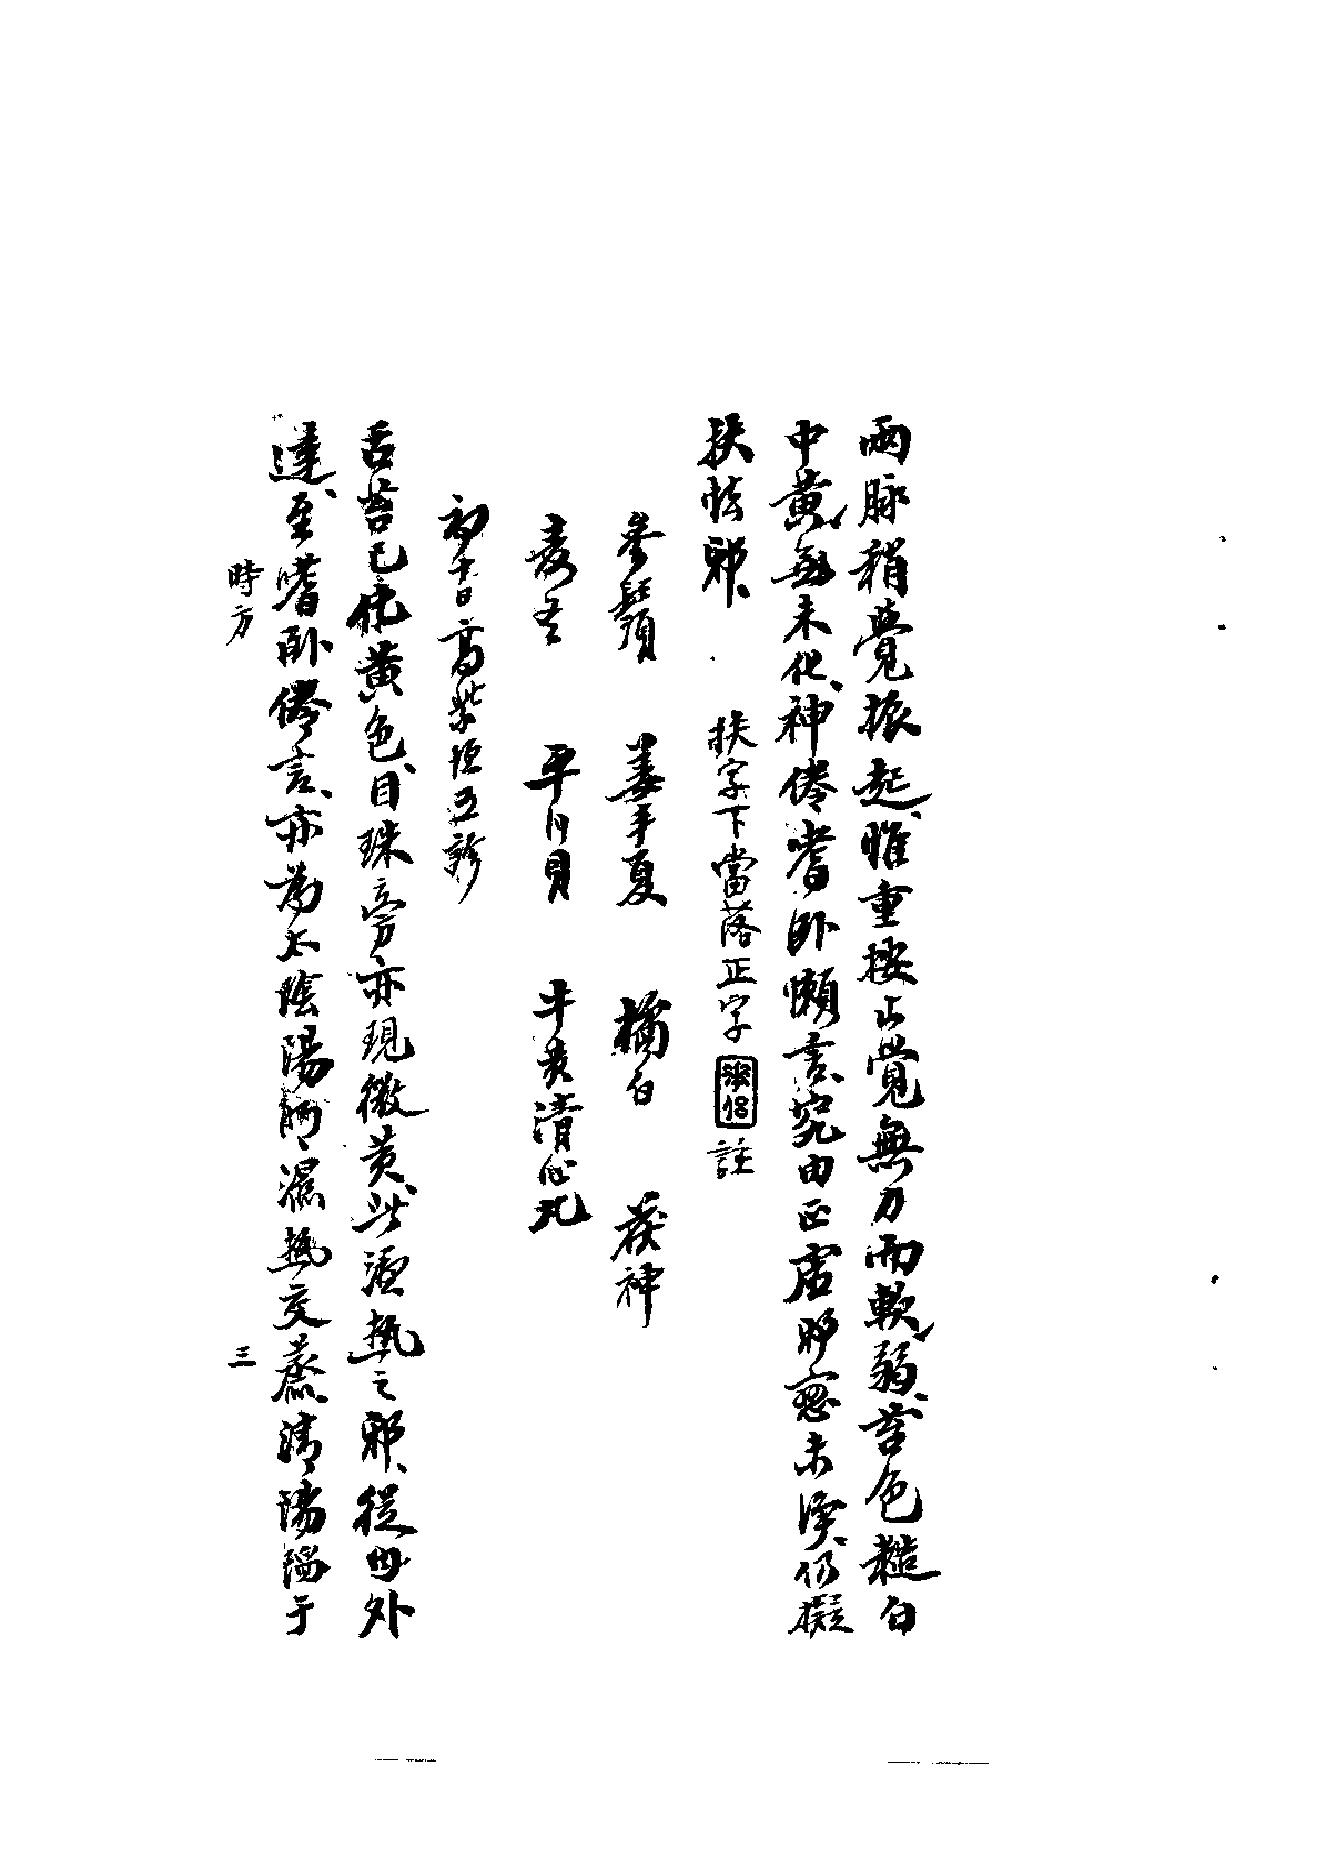 兩脉稍覺振起、唯重按亡覺無力而軟弱、苔色糙白
中黃、無未化、神倦嗜卧懶言、究由正虛邪戀未淨、仍擬
扶怯邪、 扶字下當落正字 註
參鬚 姜半夏 橘白 茯神
麦冬 平川貝 牛黃清心丸
初十日高紫垣五診
舌苔已化黃色、目珠旁亦現微黃、此濕熱之邪、從毋外
達、至嗜卧倦言、亦為太陰陽、濕熱交蒸、清陽陽于
時方
三